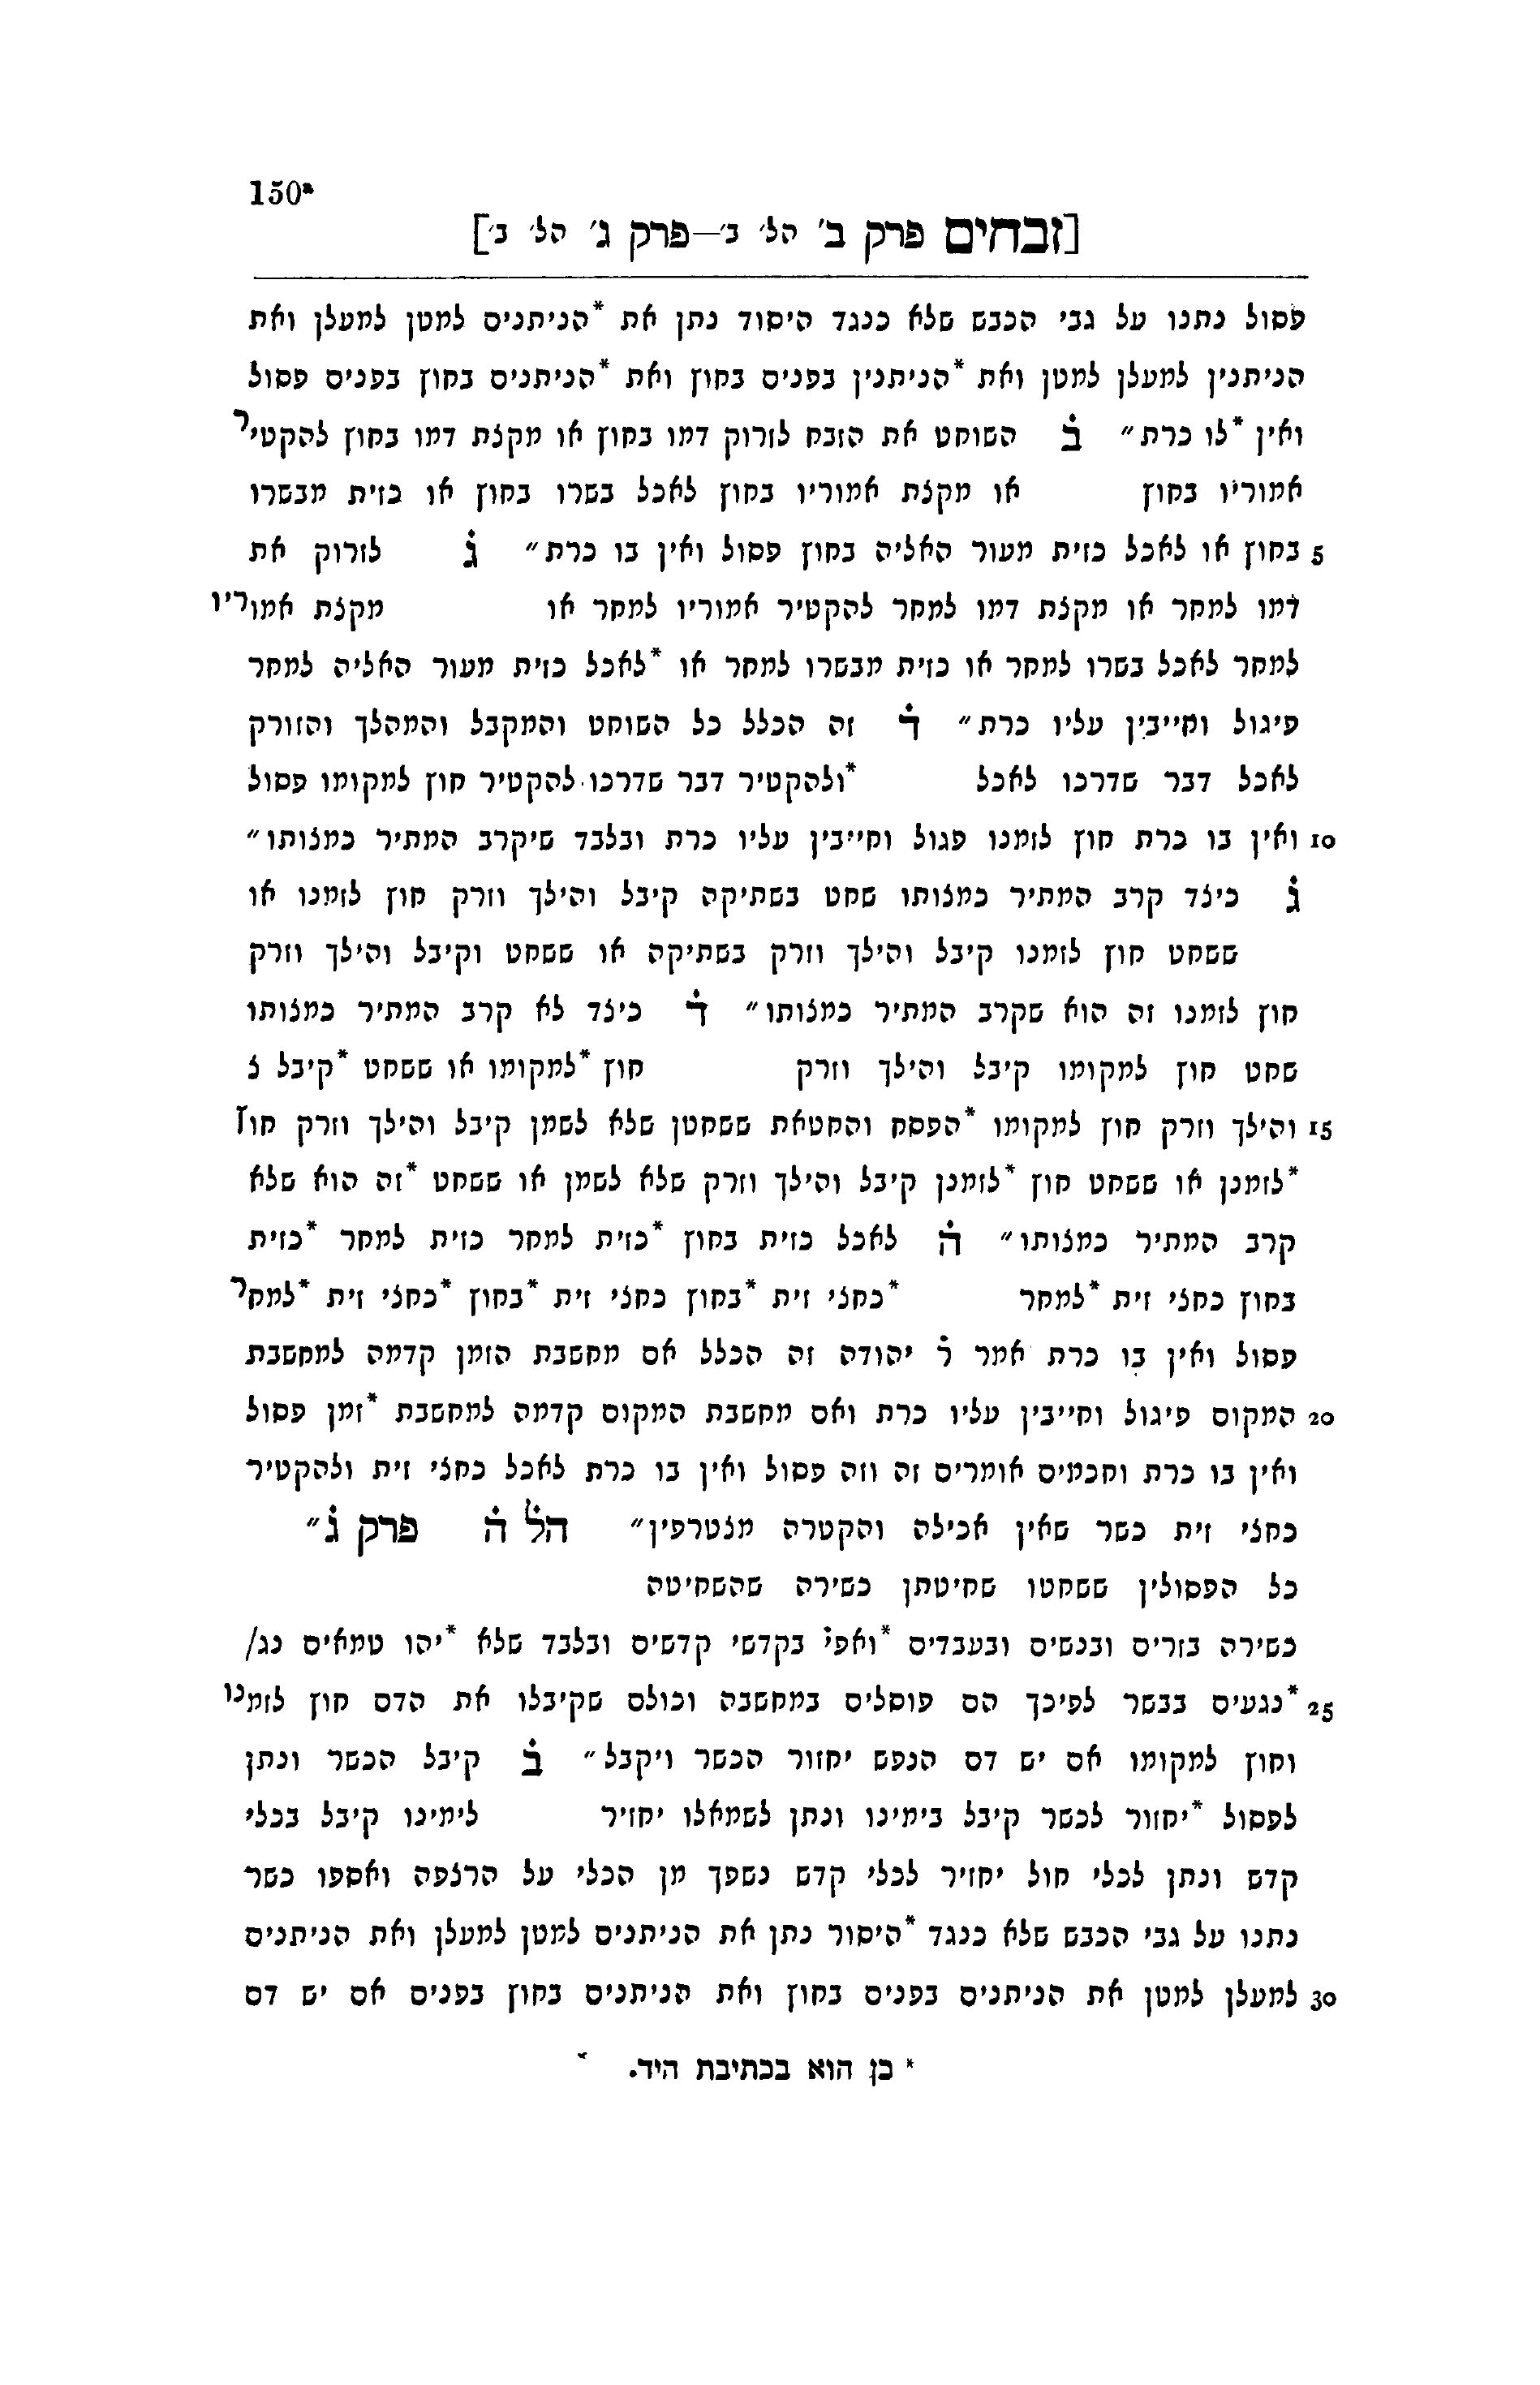 150ᵃ
[זבחים פרק ב' הל' ב'—פרק ג' הל' ב']
פסול נתנו על גבי הכבש שלא כנגד היסוד נתן את *הניתנים למטן למעלן ואת
הניתנין למעלן למטן ואת *הניתנין בפנים בחוץ ואת *הניתנים בחוץ בפנים פסול
ואין *לו כרת״ ב̇ השוחט את הזבח לזרוק דמו בחוץ או מקצת דמו בחוץ להקטיר
אמוריו בחוץ או מקצת אמוריו בחוץ לאכל בשרו בחוץ או כזית מבשרו
5 בחוץ או לאכל כזית מעור האליה בחוץ פסול ואין בו כרת״ ג̇ לזרוק את
דמו למחר או מקצת דמו למחר להקטיר אמוריו למחר או מקצת אמוריו
למחר לאכל בשרו למחר או כזית מבשרו למחר או *לאכל כזית מעור האליה למחר
פיגול וחייבין עליו כרת״ ד̇ זה הכלל כל השוחט והמקבל והמהלך והזורק
לאכל דבר שדרכו לאכל *ולהקטיר דבר שדרכו להקטיר חוץ למקומו פסול
10 ואין בו כרת חוץ לזמנו פגול וחייבין עליו כרת ובלבד שיקרב המתיר כמצותו״
ג̇ כיצד קרב המתיר כמצותו שחט בשתיקה קיבל והילך וזרק חוץ לזמנו או
ששחט חוץ לזמנו קיבל והילך וזרק בשתיקה או ששחט וקיבל והילך וזרק
חוץ לזמנו זה הוא שקרב המתיר כמצותו״ ד̇ כיצד לא קרב המתיר כמצותו
שחט חוץ למקומו קיבל והילך וזרק חוץ *למקומו או ששחט *קיבל צ
15 והילך וזרק חוץ למקומו *הפסח והחטאת ששחטן שלא לשמן קיבל והילך וזרק חוץ
*לזמנן או ששחט חוץ *לזמנן קיבל והילך וזרק שלא לשמן או ששחט *זה הוא שלא
קרב המתיר כמצותו״ ה̇ לאכל כזית בחוץ *כזית למחר כזית למחר *כזית
בחוץ כחצי זית *למחר *כחצי זית *בחוץ כחצי זית *בחוץ *כחצי זית *למחר
פסול ואין בו כרת אמר ר̇ יהודה זה הכלל אם מחשבת הזמן קדמה למחשבת
20 המקום פיגול וחייבין עליו כרת ואם מחשבת המקום קדמה למחשבת *זמן פסול
ואין בו כרת וחכמים אומרים זה וזה פסול ואין בו כרת לאכל כחצי זית ולהקטיר
כחצי זית כשר שאין אכילה והקטרה מצטרפין״ הל̇ ה̇ פרק ג̇״
כל הפסולין ששחטו שחיטתן כשירה שהשחיטה
כשירה בזרים ובנשים ובעבדים *ואפי̇ בקדשי קדשים ובלבד שלא *יהו טמאים נג/
25 *נגעים בבשר לפיכך הם פוסלים במחשבה וכולם שקיבלו את הדם חוץ לזמנו
וחוץ למקומו אם יש דם הנפש יחזור הכשר ויקבל״ ב̇ קיבל הכשר ונתן
לפסול *יחזור לכשר קיבל בימינו ונתן לשמאלו יחזיר לימינו קיבל בכלי
קדש ונתן לכלי חול יחזיר לכלי קדש נשפך מן הכלי על הרצפה ואספו כשר
נתנו על גבי הכבש שלא כנגד *היסור נתן את הניתנים למטן למעלן ואת הניתנים
30 למעלן למטן את הניתנים בפנים בחוץ ואת הניתנים בחוץ בפנים אם יש דם
* כן הוא בכתיבת היד.